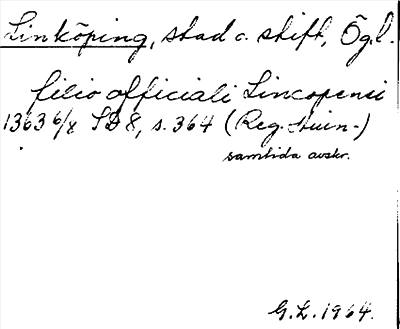 Linköping, stad o. stift, Ögl.
filio officiali Lincopensi
1363 6/8 SD 8, s. 364 (Reg. Huin-)
samtida avskr.
G.L. 1964.